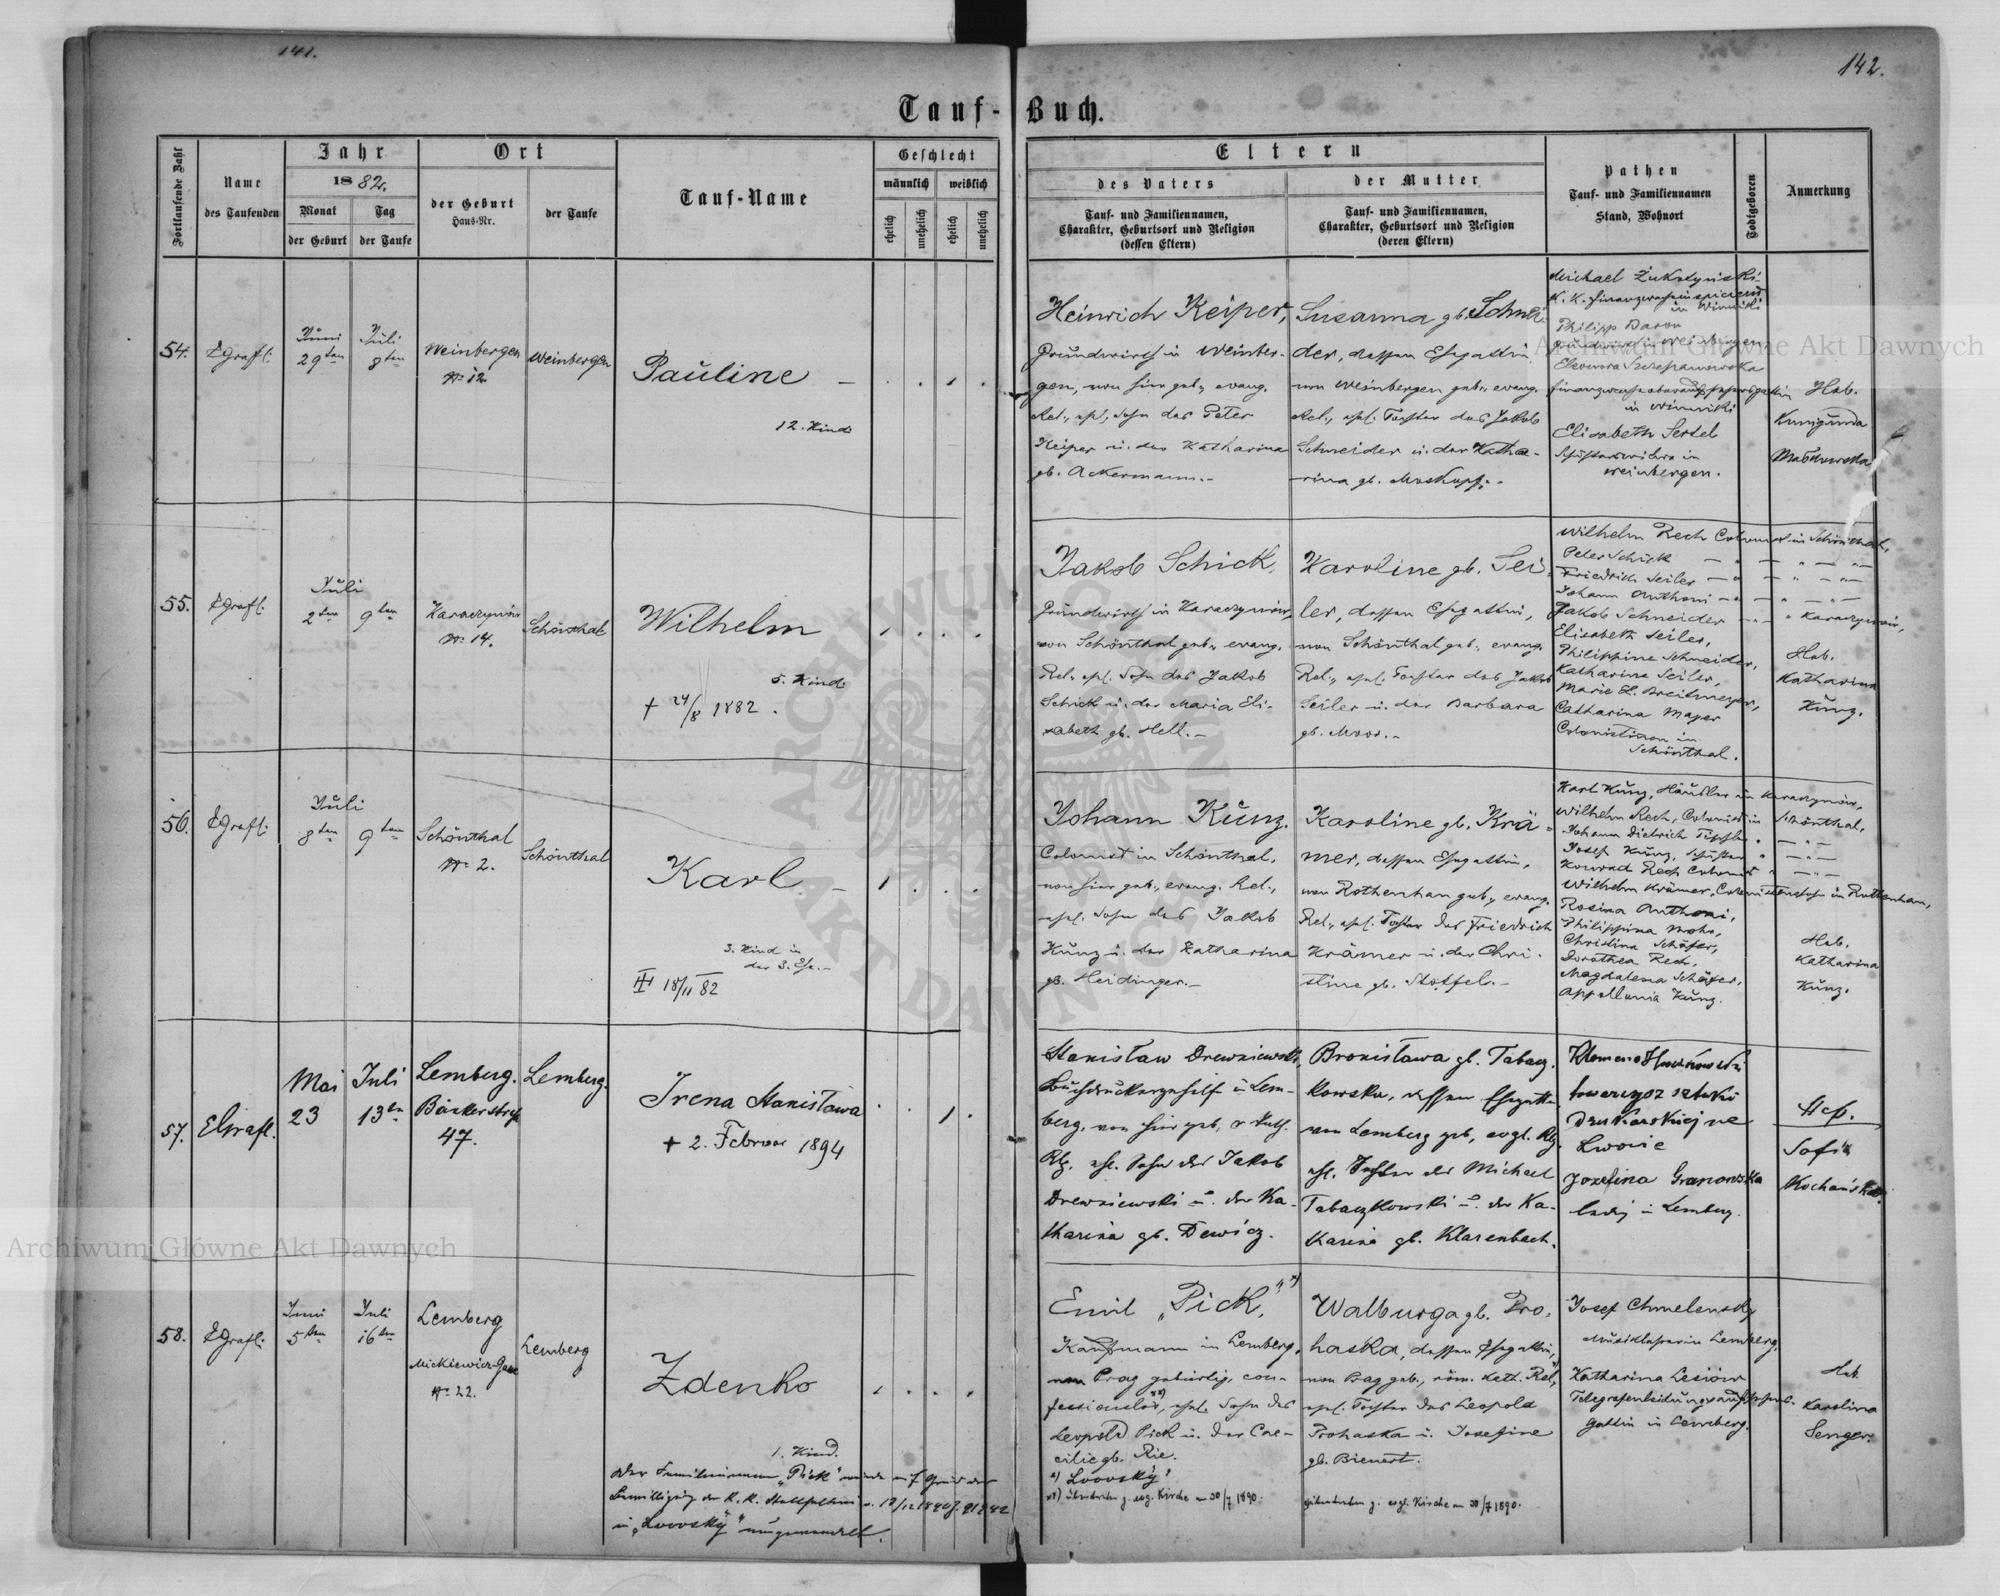 141.
142.
Tauf-Buch.
Fortlaufende Zahl
Name
des Taufenden
Jahr
1882.
Monat
Tag
der Geburt
der Taufe
Ort
der Geburt
Haus-Nr.
der Taufe
Tauf-Name
Geschlecht
männlich
weiblich
ehelich
unehelich
ehelich
unehelich
Eltern
des Vaters
Tauf- und Familiennamen,
Charakter, Geburtsort und Religion
(dessen Eltern)
der Mutter
Tauf- und Familiennamen,
Charakter, Geburtsort und Religion
(deren Eltern)
Pathen
Tauf- und Familiennamen
Stand, Wohnort
Todtgeboren
Anmerkung
54.
EGrafl.
Juni
29ten
Juli
8ten
Weinbergen
No 12
Weinbergen
Pauline
12. Kind
Heinrich Keiper,
Grundwirth in Weinber-
gen, von hier geb., evang.
Rel., ehl. Sohn des Peter
Keiper u. der Katharina
gb. Ackermann.-
Susanna gb. Schnei-
der, dessen Ehegattin
von Weinbergen geb., evang.
Rel., ehl. Tochter des Jakob
Schneider u. der Katha-
rina gb. Moskopf.-
Michael
in Winniki
Philipp Baron
Grundwirth in Weinbergen
in Winniki
Elisabeth Sertel
in
Weinbergen.
Heb.
Kunigunda
55.
EGrafl.
Juli
2ten
9ten
Karaczynów
No 14.
Schönthal
Wilhelm
5. Kind
+ 24/8 1882.
Jakob Schick,
Grundwirth in Karaczynów,
von Schönthal geb., evang.
Rel., ehl. Sohn des Jakob
Schick u. der Maria Eli-
sabeth gb. Hell.-
Karoline gb. Sei-
ler, dessen Ehegattin,
von Schönthal geb., evang.
Rel., ehel. Tochter des Jakob
Seiler u. der Barbara
gb. Moos.-
Wilhelm Rech Colonist in Schönthal,
Peter Schick
Friedrich Seiler
Johann Anthoni
Jakob Schneider " Karaczynów,
Elisabeth Seiler,
Philippine Schneider,
Katharina Seiler,
Marie El. Breitmeyer,
Catharina Mayer
Colonistinen in
Schönthal.
Heb.
Katharina
Kunz.
56.
EGrafl.
Juli
8ten
9ten
Schönthal
No 2.
Schönthal
Karl
3. Kind in
der 3. Ehe.-
III 18/11 82
Johann Kunz.
Colonist in Schönthal,
von hier geb., evang. Rel.,
ehel. Sohn des Jakob
Kunz u. der Katharina
gb. Heidinger.-
Karoline gb. Krä-
mer, dessen Ehegattin,
von Rothenhan geb., evang.
Rel., ehel. Tochter des Friedrich
Krämer u. der Chri-
stine gb. Stotfel.-
Karl Kunz, Häusler in Karaczynów,
Wilhelm Rech, Colonist in Schönthal,
Johann Dietrich
Josef Kunz, Schuster
Konrad Rech Colonist
Wilhelm Krämer, Colonistensohn in Rottenhan,
Rosina Anthoni,
Philippina Mohr,
Christina Schäfer,
Dorothea Rech,
Magdalena Schäfer,
Appollonia Kunz.
Heb.
Katharina
Kunz.
57.
EGrafl.
Mai
23
Juli
13ten
Lemberg.
47.
Lemberg.
Irena Stanisława
+ 2. Februar 1894
Stanisław Drewniewski,
Buchdruckergehilfe in Lem-
berg, von hier geb,
Rlg. ehl. Sohn des Jakob
Drewniewski u. der Ka-
tharina gb. Dewicz.
Bronisława gb. Tabacz-
kowska, dessen Ehegattin
von Lemberg geb, evgl. Rlg.
ehl. Tochter des Michael
Tabaczkowski u. der Ka-
tharina gb. Klarenbach.
towarzysz sztuki
drukarskiej we
Lwowie
Jozefina Granowska
in Lemberg.
Heb.
Sofia
Kochańska.
58.
EGrafl.
Juni
5ten
Juli
16ten
Lemberg
Mickiewicz-Gasse
No 22.
Lemberg
Zdenko
1. Kind.
Der Familienname "Pick" wurde auf Grund der
Bewilligung der K. K. Statthalterei
in "Lvovský" umgewandelt.
Emil "Pick," x)
Kaufmann in Lemberg,
von Prag gebürtig, con-
fessionslos, xx) ehel. Sohn des
Leopold Pick u. der Cae-
cilie gb. Rie.
x) Lvovský
xx) Übertreten z. evg. Kirche am 30/7 1890.
Walburga gb. Pro-
haska, dessen Ehegattin,
von Prag geb., röm. kath. Rel.,
ehel. Tochter des Leopold
Prohaska u. Josefine
gb. Bienert.
übertreten z. evgl. Kirche am 30/7 1890.
Josef Chmelensky
Musiklehrer in Lemberg,
Katharina
Gattin in Lemberg.
Heb.
Karolina
Senger.
Archiwum Główne Akt Dawnych
Archiwum Główne Akt Dawnych
ARCHIWUM GŁÓWNE AKT DAWNYCH